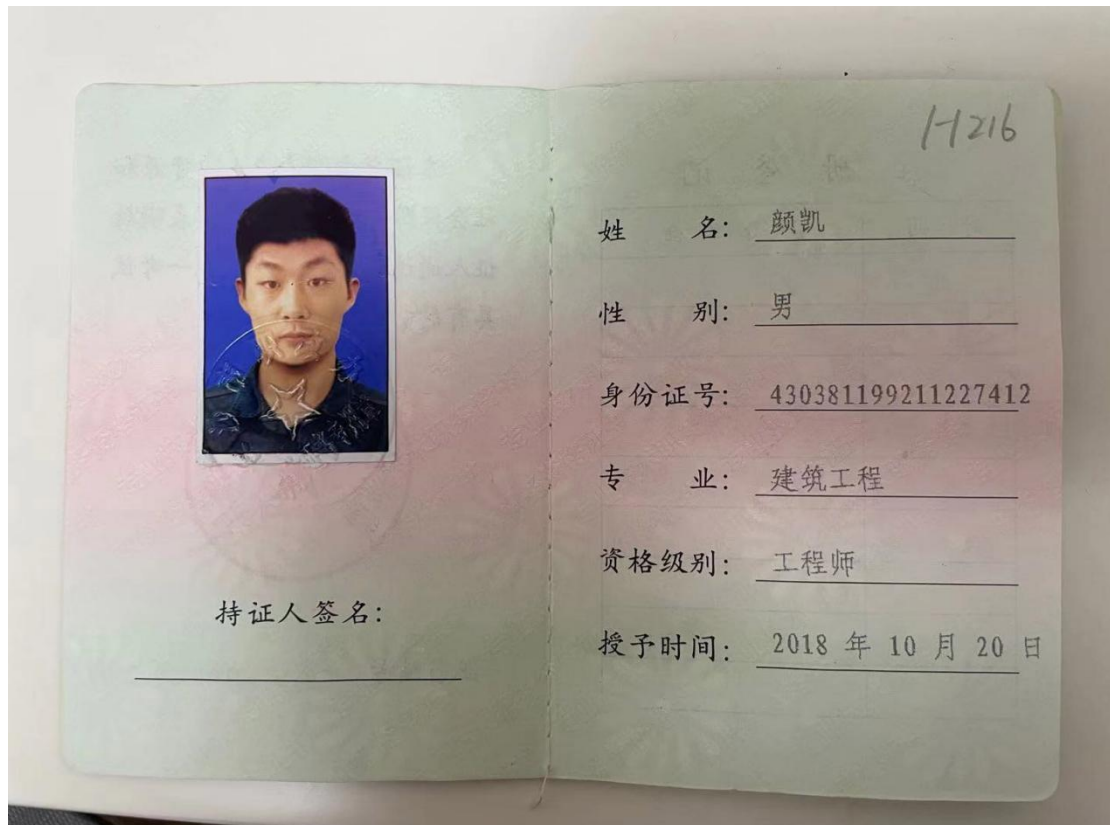 1-1216
姓 名: 颜凯
性 别: 男
身份证号: 430381199211227412
专 业: 建筑工程
资格级别: 工程师
授予时间: 2018 年 10 月 20 日
持证人签名: